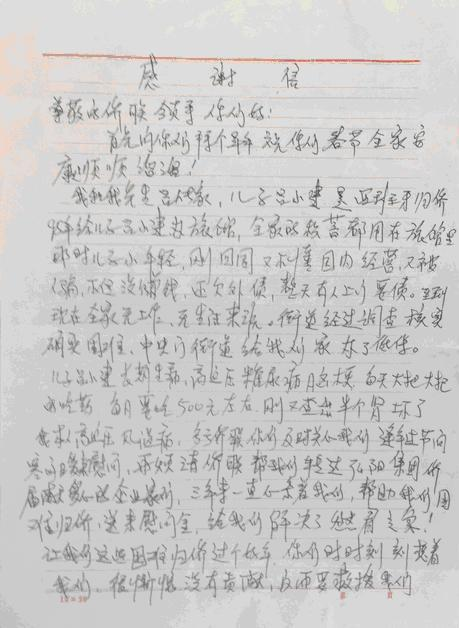 感谢信
尊敬的侨联领导你们好：
首先向你们拜个早年 祝你们春节全家安
康顺顺溜溜！
我和我先生吕 家，儿子吕小建 是 归侨
年给儿子小建 旅馆，全家的积蓄都用在旅馆里
那时儿子小年轻，刚回国又不懂国内经营，又被
人骗，不但没赚钱，还欠外债，整天有人上门要债。直到
现在全家无工作，无生活来源。街道经过调查核实
确实困难，中央门街道给我们家办了低保。
儿子吕小建长期生病，高血压糖尿病 每天大把大把
的吃药，每月要吃500元左右，刚又查出半个肾坏了
我本人高血压 病，多亏侨联你们及时关心我们 逢年过节问
寒问暖慰问，再烦请侨联帮我们转达弘阳集团侨
属 爱心的企业 ，三年来一直 着我们，帮助我们困
难归侨，送来慰问金，给我们解决了燃眉之急！
让我们这些困难归侨过个好年，你们时时刻刻想着
我们，很惭愧没有贡献，反而要救援我们